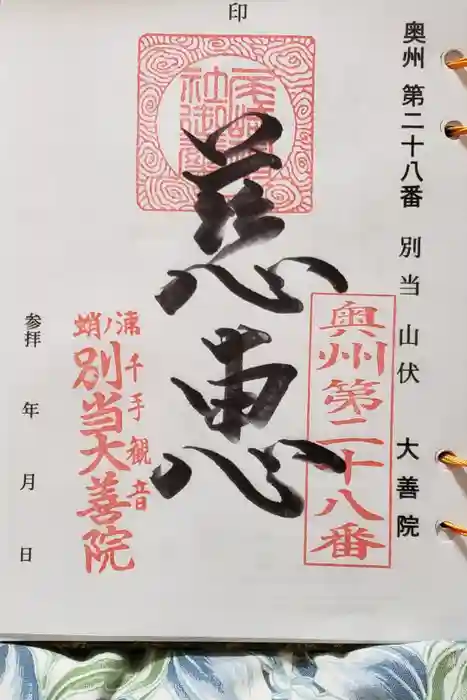 印
奥州 第二十八番 別当 山伏 大善院
奥州第二十八番
慈恵
蛸ノ浦
千手観音
別当大善院
参拝 年 月 日